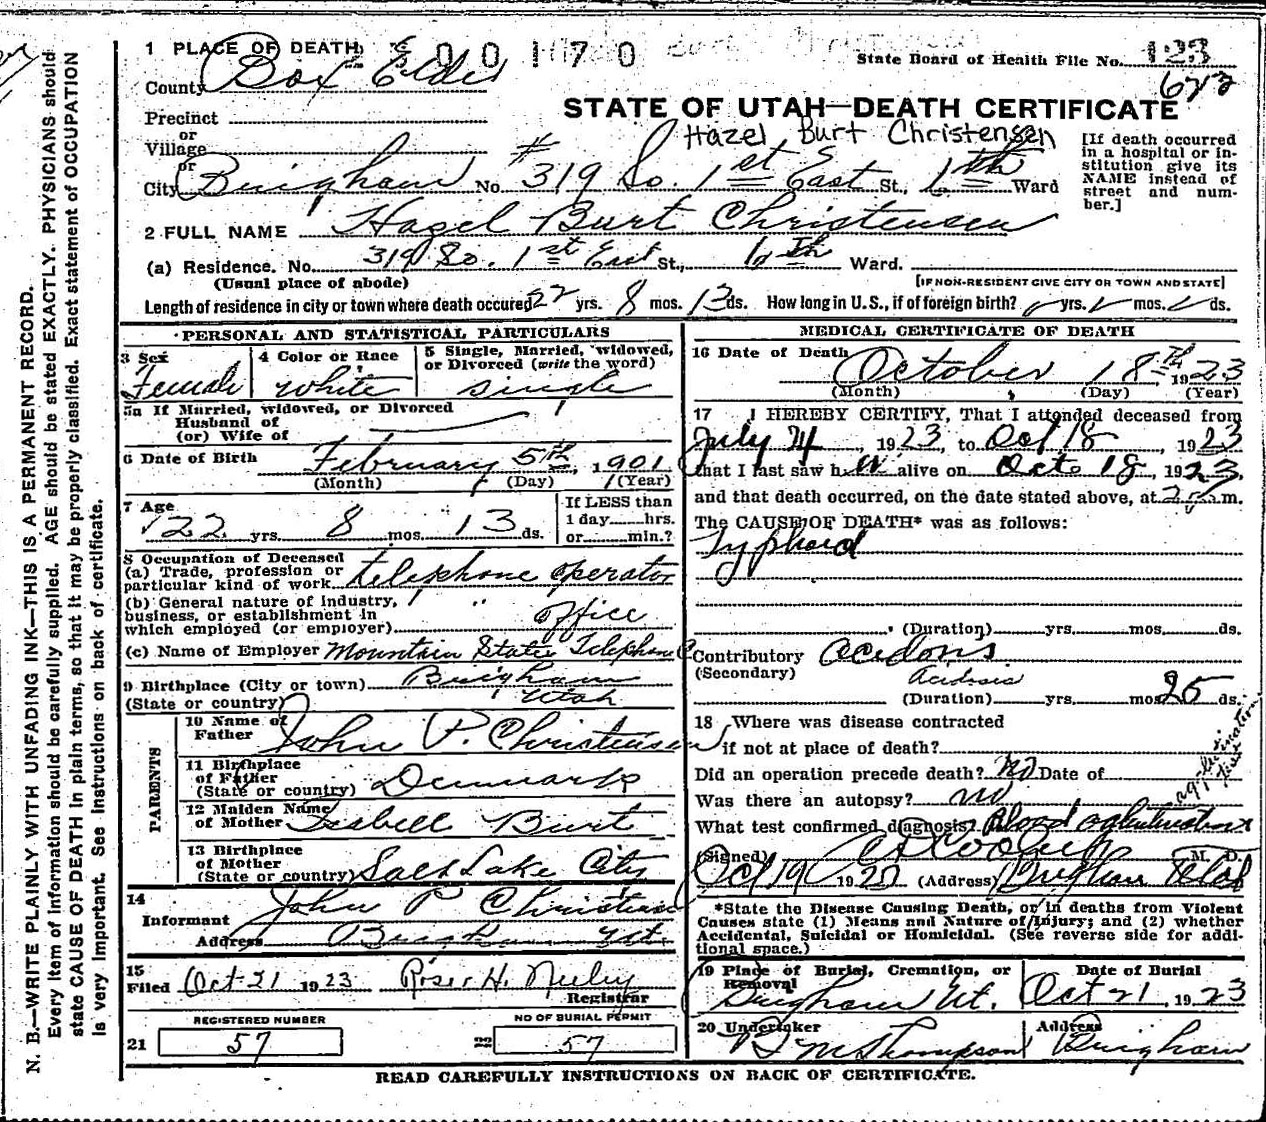 1 PLACE OF DEATH 2300170
State Board of Health File No. 123
County Box Elder
623
STATE OF UTAH—DEATH CERTIFICATE
Precinct
or
Village
Hazel Burt Christensen
[If death occurred in a hospital or institution give its NAME instead of street and number.]
or
City Brigham No. #319 So. 1st East St., 6th Ward
2 FULL NAME Hazel Burt Christensen
(a) Residence. No. 319 So. 1st East St., 6th Ward.
(Usual place of abode) [IF NON-RESIDENT GIVE CITY OR TOWN AND STATE]
Length of residence in city or town where death occured 22 yrs. 8 mos. 13 ds. How long in U.S., if of foreign birth? yrs. mos. ds.
PERSONAL AND STATISTICAL PARTICULARS
3 Sex Female
4 Color or Race white
5 Single, Married, widowed, or Divorced (write the word) single
5a If Married, widowed, or Divorced
Husband of
(or) Wife of
6 Date of Birth February 5th, 1901
(Month) (Day) (Year)
7 Age 22 yrs. 8 mos. 13 ds.
If LESS than
1 day hrs.
or min.?
8 Occupation of Deceased
(a) Trade, profession or
particular kind of work telephone operator
(b) General nature of industry,
business, or establishment in
which employed (or employer) " office
(c) Name of Employer Mountain States Telephone
9 Birthplace (City or town) Brigham
(State or country) Utah
PARENTS
10 Name of
Father John P. Christensen
11 Birthplace
of Father
(State or country) Denmark
12 Maiden Name
of Mother Isabell Burt
13 Birthplace
of Mother
(State or country) Salt Lake City
14
Informant John P Christensen
Address Brigham Ut.
15
Filed Oct 21 1923 Rose H. Neeley
Registrar
REGISTERED NUMBER NO OF BURIAL PERMIT
21 57 22 57
MEDICAL CERTIFICATE OF DEATH
16 Date of Death October 18th, 1923
(Month) (Day) (Year)
17 I HEREBY CERTIFY, That I attended deceased from
July 24, 1923, to Oct 18, 1923
that I last saw her alive on Oct 18, 1923.
and that death occurred, on the date stated above, at m.
The CAUSE OF DEATH* was as follows:
Typhoid
(Duration) yrs. mos. ds.
Contributory Acidosis
(Secondary) Acidosis
(Duration) yrs. mos. 25 ds.
18 Where was disease contracted
if not at place of death?
Did an operation precede death? no Date of
Was there an autopsy? no
agglutination
What test confirmed diagnosis? Blood aglutination
(Signed) M. D.
Oct 19 1923 (Address) Brigham Utah
*State the Disease Causing Death, or in deaths from Violent
Causes state (1) Means and Nature of Injury; and (2) whether
Accidental, Suicidal or Homicidal. (See reverse side for addi-
tional space.)
19 Place of Burial, Cremation, or Removal Brigham Ut.
Date of Burial Oct 21, 1923
20 Undertaker Thompson
Address Brigham
READ CAREFULLY INSTRUCTIONS ON BACK OF CERTIFICATE.
N. B.—WRITE PLAINLY WITH UNFADING INK—THIS IS A PERMANENT RECORD.
Every item of information should be carefully supplied. AGE should be stated EXACTLY. PHYSICIANS should
state CAUSE OF DEATH in plain terms, so that it may be properly classified. Exact statement of OCCUPATION
is very important. See instructions on back of certificate.